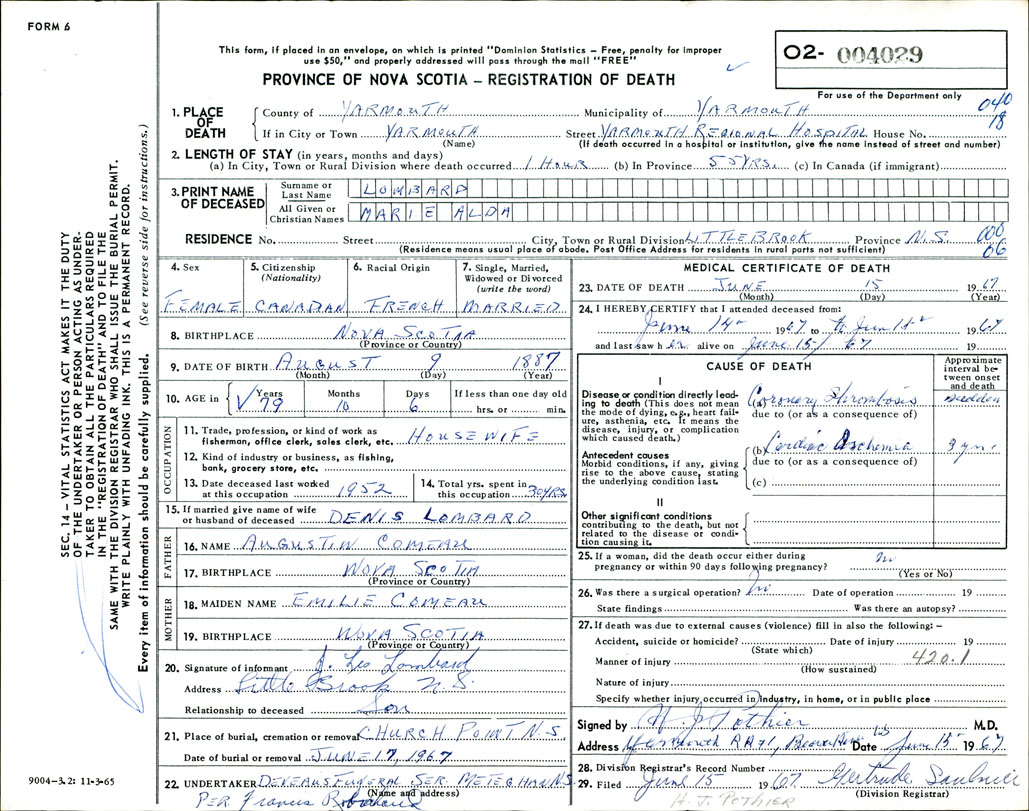 FORM 6
This form, if placed in an envelope, on which is printed "Dominion Statistics – Free, penalty for improper
use $50," and properly addressed will pass through the mail "FREE"
PROVINCE OF NOVA SCOTIA – REGISTRATION OF DEATH
O2- 004029
For use of the Department only
040
18
1. PLACE OF DEATH
County of YARMOUTH Municipality of YARMOUTH
If in City or Town YARMOUTH Street YARMOUTH REGIONAL HOSPITAL House No.
(Name) (If death occurred in a hospital or institution, give the name instead of street and number)
2. LENGTH OF STAY (in years, months and days)
(a) In City, Town or Rural Division where death occurred 1 HOUR (b) In Province 55 YRS. (c) In Canada (if immigrant)
3. PRINT NAME OF DECEASED
Surname or Last Name LOMBARD
All Given or Christian Names MARIE ALDA
RESIDENCE No. Street City, Town or Rural Division LITTLEBROOK Province N.S.
000
06
(Residence means usual place of abode. Post Office Address for residents in rural parts not sufficient)
4. Sex FEMALE
5. Citizenship (Nationality) CANADIAN
6. Racial Origin FRENCH
7. Single, Married, Widowed or Divorced (write the word) MARRIED
8. BIRTHPLACE NOVA SCOTIA
(Province or Country)
9. DATE OF BIRTH AUGUST 9 1887
(Month) (Day) (Year)
10. AGE in Years 79 Months 10 Days 6 If less than one day old hrs. or min.
OCCUPATION
11. Trade, profession, or kind of work as
fisherman, office clerk, sales clerk, etc. HOUSEWIFE
12. Kind of industry or business, as fishing,
bank, grocery store, etc.
13. Date deceased last worked
at this occupation 1952
14. Total yrs. spent in
this occupation 30 YRS
15. If married give name of wife
or husband of deceased DENIS LOMBARD
FATHER
16. NAME AUGUSTIN COMEAU
17. BIRTHPLACE NOVA SCOTIA
(Province or Country)
MOTHER
18. MAIDEN NAME EMILIE COMEAU
19. BIRTHPLACE NOVA SCOTIA
(Province or Country)
20. Signature of informant J. Leo Lombard
Address Little Brook N.S.
Relationship to deceased Son
21. Place of burial, cremation or removal CHURCH POINT N.S.
Date of burial or removal JUNE 17, 1967
22. UNDERTAKER DEVEAUS FUNERAL SER. METEGHAN N.S
(Name and address)
PER Francis
MEDICAL CERTIFICATE OF DEATH
23. DATE OF DEATH JUNE 15 1967
(Month) (Day) (Year)
24. I HEREBY CERTIFY that I attended deceased from:
June 14 1967 to June 1967
and last saw her alive on June 15/67 19
CAUSE OF DEATH
Approximate interval between onset and death
I
Disease or condition directly leading to death (This does not mean the mode of dying, e.g., heart failure, asthenia, etc. It means the disease, injury, or complication which caused death.)
(a) Coronary Thrombosis sudden
due to (or as a consequence of)
Antecedent causes
Morbid conditions, if any, giving rise to the above cause, stating the underlying condition last.
(b) Cardiac Ischemia
due to (or as a consequence of)
(c)
II
Other significant conditions
contributing to the death, but not related to the disease or condition causing it.
25. If a woman, did the death occur either during
pregnancy or within 90 days following pregnancy? no
(Yes or No)
26. Was there a surgical operation? no Date of operation 19
State findings Was there an autopsy?
27. If death was due to external causes (violence) fill in also the following: –
Accident, suicide or homicide? Date of injury 19
(State which)
Manner of injury 420.1
(How sustained)
Nature of injury
Specify whether injury occurred in Industry, in home, or in public place
Signed by H. J. Pothier M.D.
Address Yarmouth Date June 15 1967
28. Division Registrar's Record Number
29. Filed June 15 1967 Gertrude Saulnier
(Division Registrar)
H. J. POTHIER
SEC. 14 – VITAL STATISTICS ACT MAKES IT THE DUTY
OF THE UNDERTAKER OR PERSON ACTING AS UNDER-
TAKER TO OBTAIN ALL THE PARTICULARS REQUIRED
IN THE "REGISTRATION OF DEATH" AND TO FILE THE
SAME WITH THE DIVISION REGISTRAR WHO SHALL ISSUE THE BURIAL PERMIT.
WRITE PLAINLY WITH UNFADING INK. THIS IS A PERMANENT RECORD.
Every item of information should be carefully supplied. (See reverse side for instructions.)
9004–3.2: 11-3-65